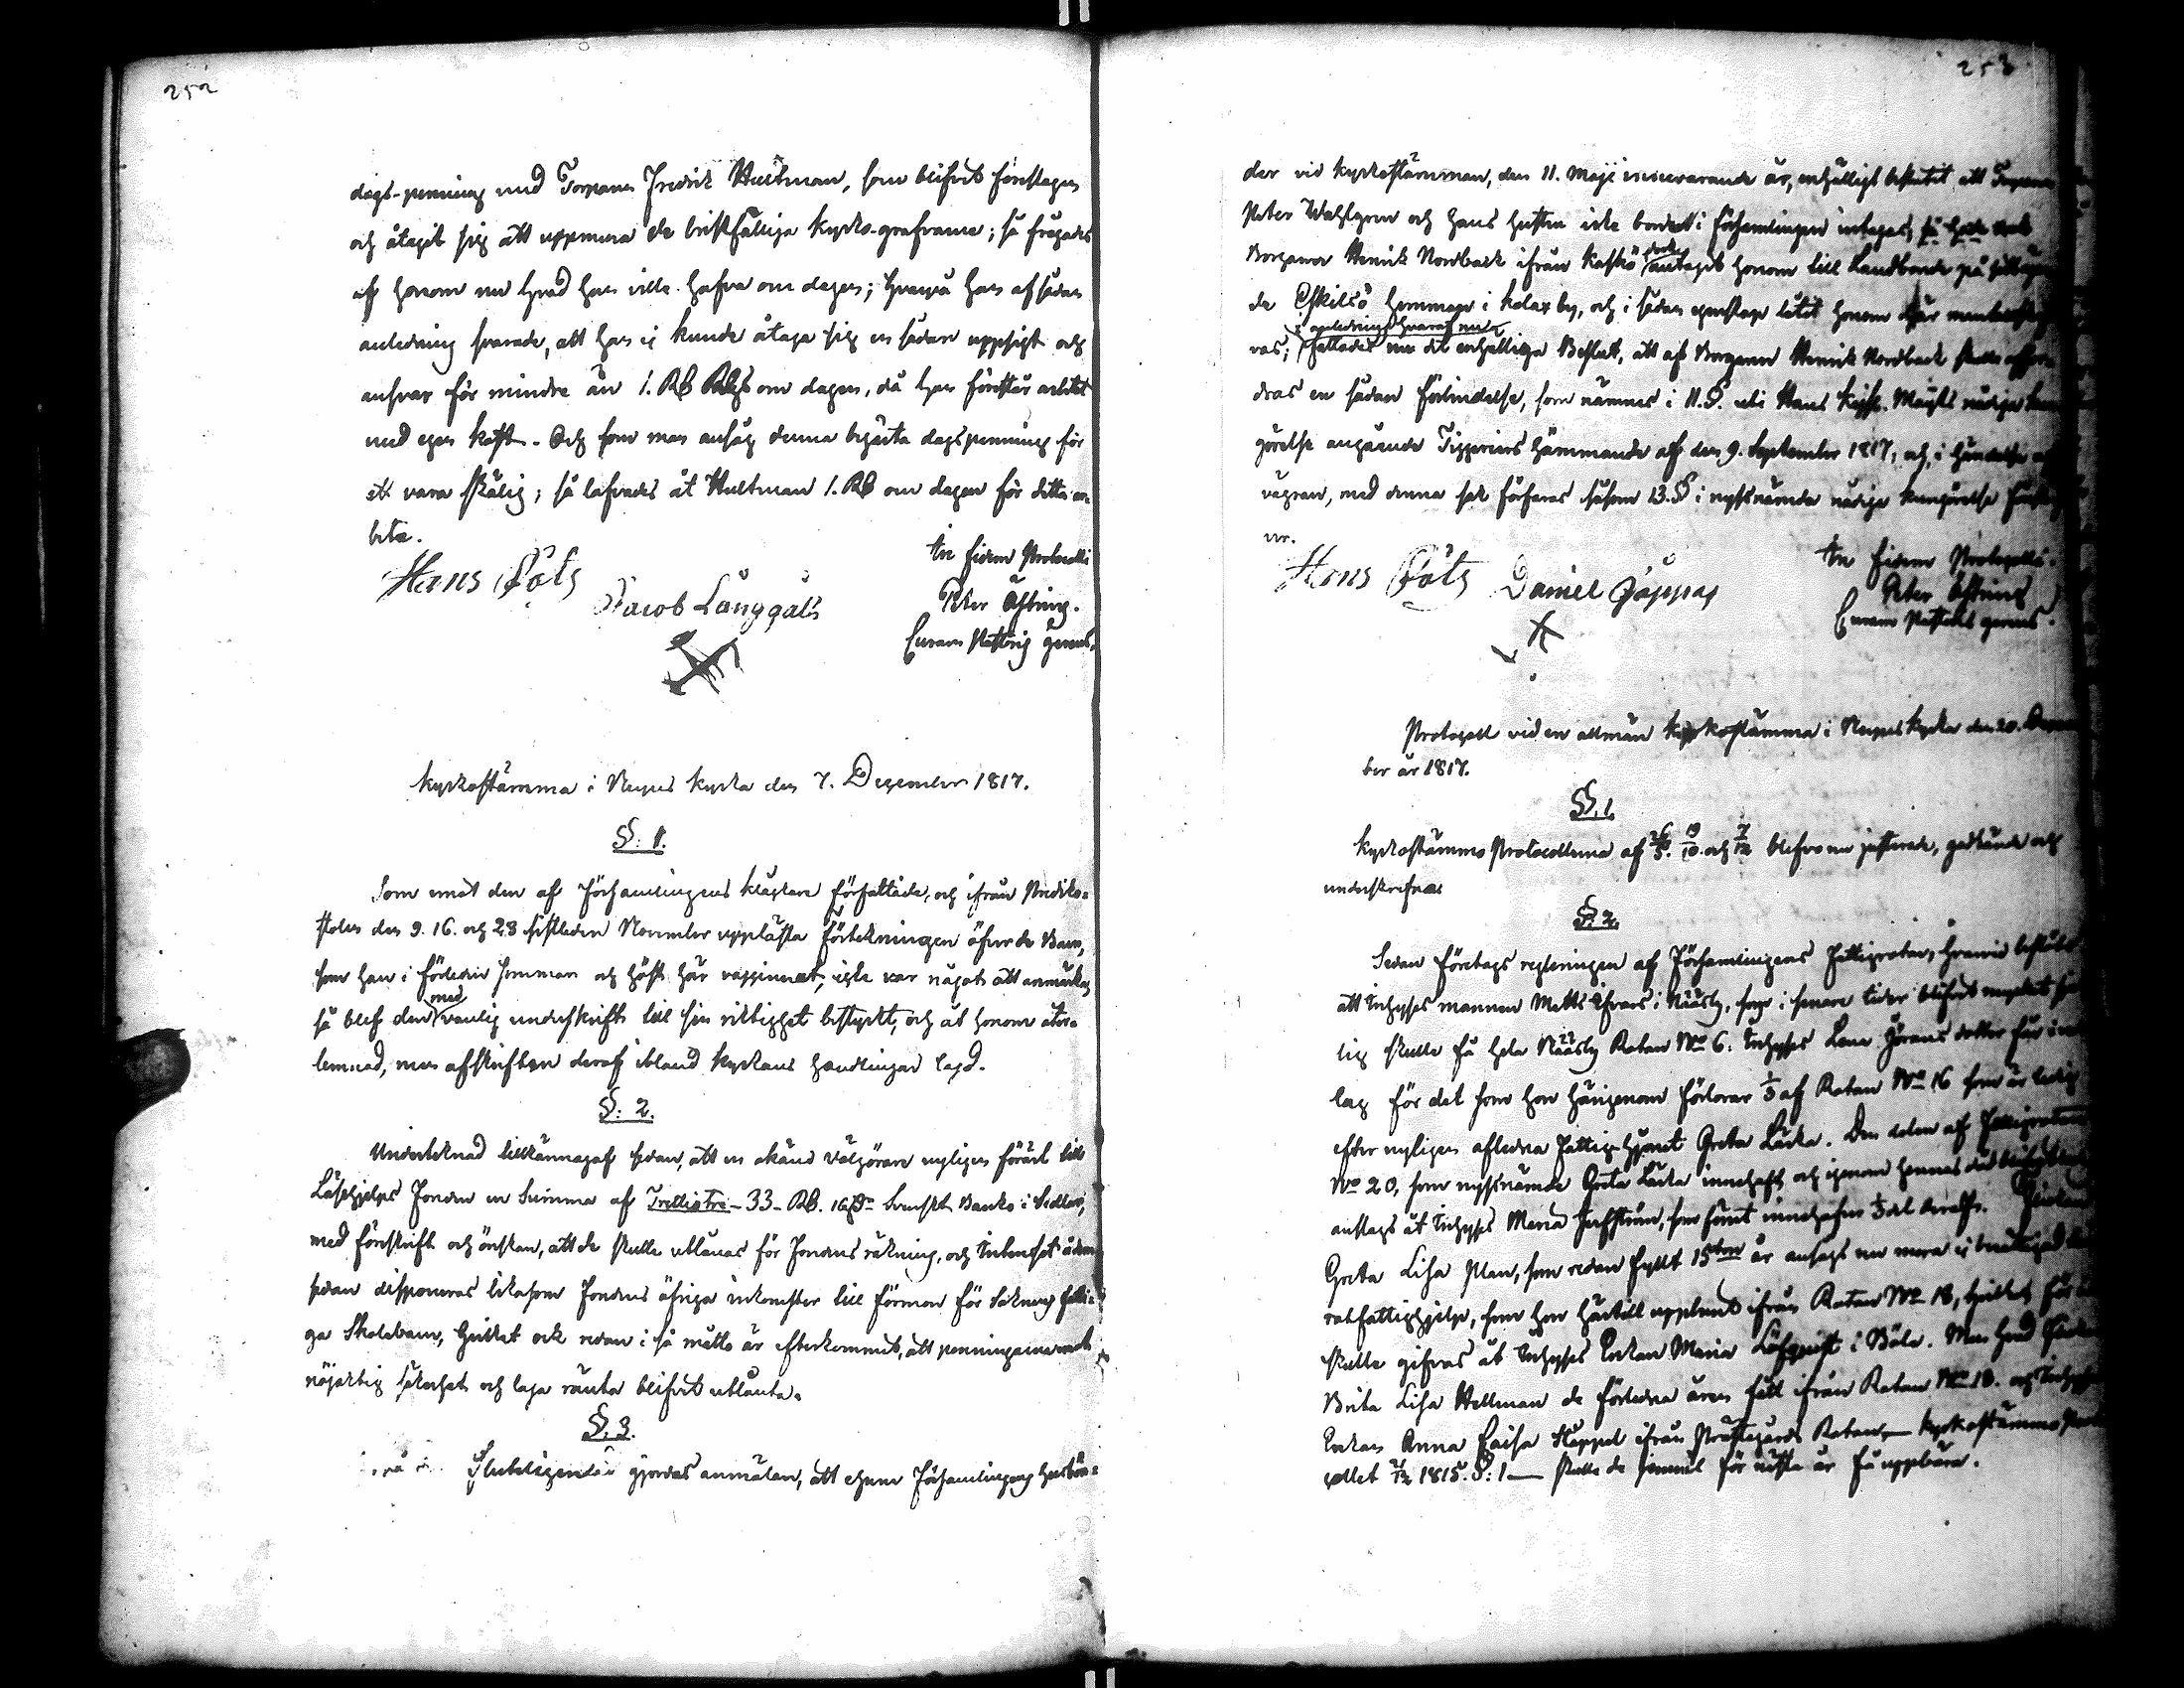 252
dags-penning med Torparen Fredrik Hultman, som blifvit föreslagen
och åtagit sig att uppmura de bristfällige kyrko-grafvarne; så frågades
af honom nu hvad han ville hafva om dagen; hvarpå han af sådan
anledning svarade, att han ej kunde åtaga sig en sådan uppsigt och
ansvar för mindre än 1. RB om dagen, då han förestår arbetet
med egen kost. Och som man ansåg denna begärta dagspenning för
att vara skälig; så lofvades åt Hultman 1. RB om dagen för detta ar-
bete.
Hans Påts
Jacob Långgåls
In fidem Protocolli
Peter Åstring.
Curam Pastoris gerens.
Kyrkostämma i Nerpes Kyrka den 7. December 1817.
§: 1.
Som emot den af Församlingens Klåckare författade, och ifrån Prediko-
stolen den 9. 16. och 23 sistleden November upplästa Förtekningen öfver de Barn,
som han i förleden sommar och höst här vaccinerat, icke var något att anmärka,
så blef den med vanlig underskrift till sin riktighet bestyrkt, och åt honom åter-
lemnad, men afskriften deraf ibland Kyrkans handlingar lagd.
§: 2.
Undertecknad tillkännagaf sedan, att en okänd välgörare nyligen förärt till
Läsehjelps Fonden en Summa af Trettiotre - 33 - RB. 16 Svenskt Banko i Sedlar,
med föreskrift och önskan, att de skulle utlånas för Fondens räkning, och Interesset
sedan disponeras likasom Fondens öfriga inkomster till förmon för Socknens fatti-
ga Skolebarn, hvilket ock redan i så måtto är efterkommet, att penningarne emot
nöjaktig säkerhet och laga ränta blifvit utlånta.
§. 3.
Sluteligen gjordes anmälan, att ehuru Församlingens husbön-
253
der vid kyrkostämman, den 11. Maji innevarande år, enhälligt beslutit att Torparen
Peter Wahlgren och hans hustru icke borde i Församlingen intagas,
Borgaren Henrik Nordback ifrån Kaskö dock antagit honom till Landbonde på
de Eskilsö hemman i Kalax by, och i sådan egenskap låtit honom här
ras; i anledning hvaraf nu fattades det enhälliga Beslut, att af Borgaren Henrik Nordback skulle
dras en sådan förbindelse, som nämnes i 11. §. uti Hans Kejs. Maj:ts nådiga kun-
görelse angående Tiggeriers hämmande af den 9. September 1817, och, i händelse af
vägran, med denna sak förfaras såsom 13. § i nyssnämde nådiga kungörelse
er.
Hans Påts
Daniel Jåppas
In fidem Protocolli.
Peter Åstring
Curam Pastoris gerens.
Protocoll vid en allmän kyrkostämma i Nerpes Kyrka den 20.
ber år 1817.
§. 1.
Kyrkostämmo Protocollerna af 26/5. 19/10. och 7/12 blefvo nu justerade, godkände och
underskrefne.
§: 2.
Sedan företogs regleringen af Församlingens Fattigrotar, hvarvid beslöts
att Inhyses mannen Matts Ifvars i Nääsby, som i senare tider blifvit mycket
lig skulle få hela Nääsby Rotan No 6. Inhyses Lena Görans dotter får
lag för det som hon härigenom förlorar 1/3 af Rotan No 16 som är ledig
efter nyligen afledna Fattig-hjonet Greta Läcka. Den delen af Fattigrotan
No 20, som nyssnämde Greta Läcka innehaft, och igenom hennes död
anslogs åt Inhyses Maria, som förut innehafver 1/3 del deraf.
Greta Lisa Plan, som redan fyllt 15 år ansågs nu mera ej
rotfattighjelp, som hon härtill uppburit ifrån Rotan No 18, hvilket
skulle gifvas åt Inhyses Enkan Maria Löfqvist i Böle. Men hvad
Brita Lisa Hellman de förledna åren fått ifrån Rotan No 10. och
Enkan Anna Caisa Kæppel ifrån Prästgårds Rotan, — Kyrkostämmo
collet 3/12 1815. §: 1 — skulle de för nästa år få uppbära.